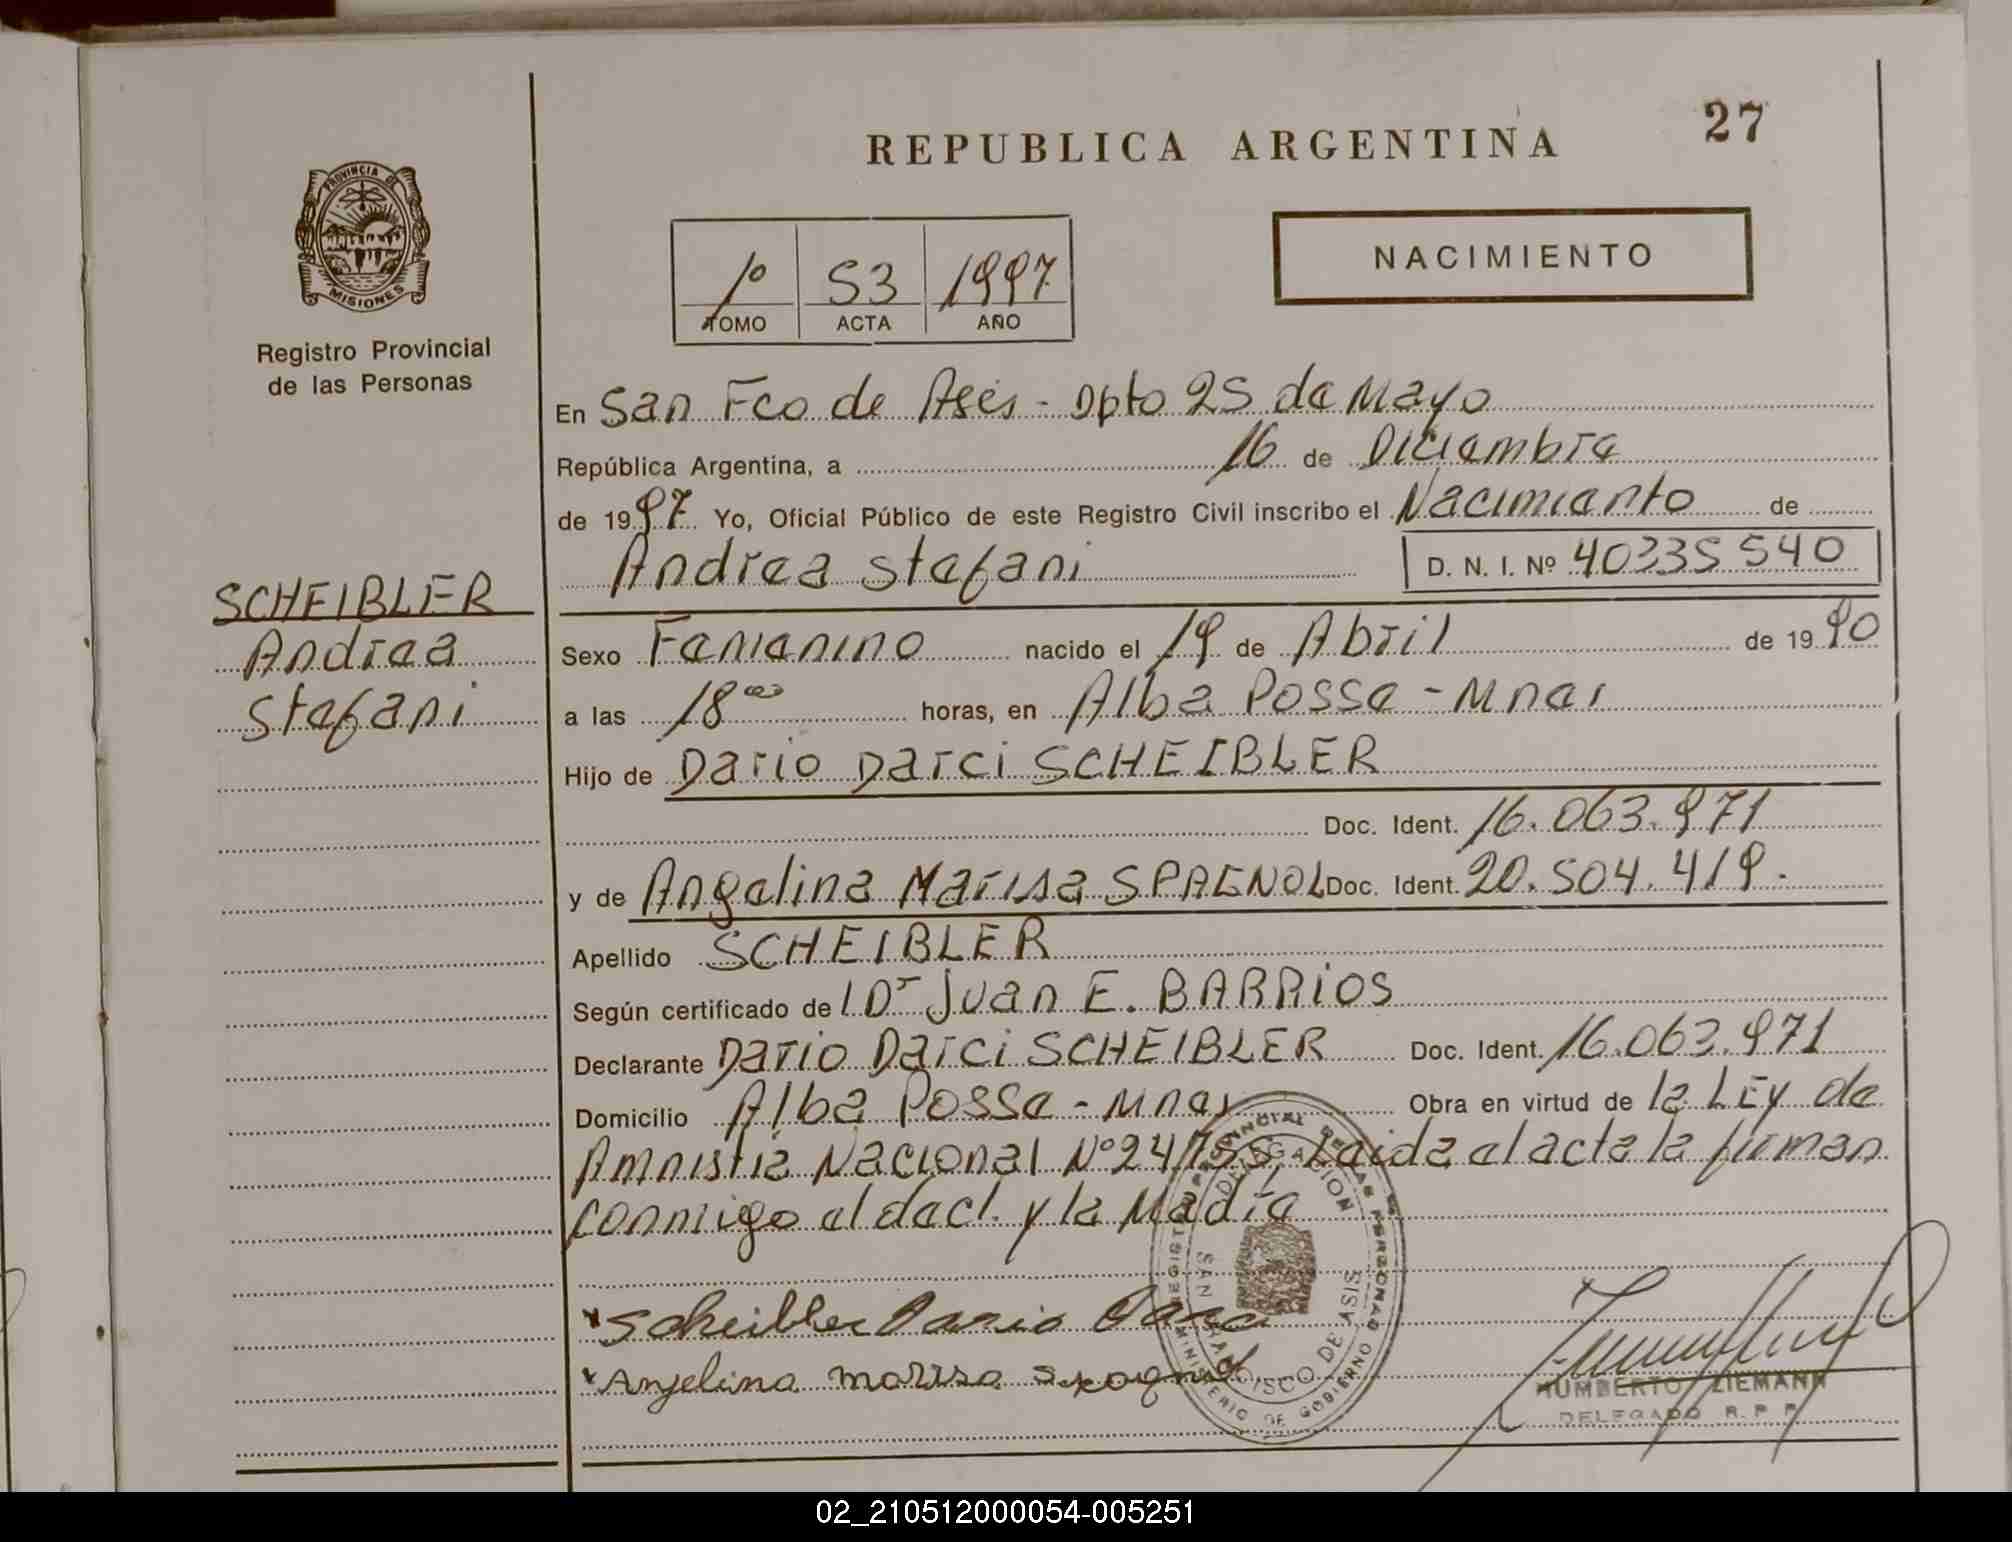 27
REPUBLICA ARGENTINA
NACIMIENTO
PROVINCIA DE
MISIONES
Registro Provincial
de las Personas
1º 53 1997
TOMO ACTA AÑO
En San Fco de Asis - Dpto 25 de Mayo
República Argentina, a 16 de Diciembre
de 1997 Yo, Oficial Público de este Registro Civil inscribo el Nacimiento de
Andrea Stefani D. N. I. Nº 40335540
SCHEIBLER
Andrea
Stefani
Sexo Femenino nacido el 19 de Abril de 1990
a las 18⁰⁰ horas, en Alba Posse - Mnes
Hijo de Dario Darci SCHEIBLER
Doc. Ident. 16.063.971
y de Angelina Marisa SPAGNOL Doc. Ident. 20.504.419.
Apellido SCHEIBLER
Según certificado de Dr Juan E. BARRIOS
Declarante Dario Darci SCHEIBLER Doc. Ident. 16.063.971
Domicilio Alba Posse - Mnes Obra en virtud de la LEy de
Amnistia Nacional Nº 24755, Leida el acta la firman
conmigo el decl. y la Madre
Scheibler Dario Darci
Anjelina marisa Spagnol
REGISTRO PROVINCIAL DE LAS PERSONAS
DELEGACION
SAN FRANCISCO DE ASIS
MINISTERIO DE GOBIERNO
HUMBERTO ZIEMANN
DELEGADO R. P. P.
02_210512000054-005251